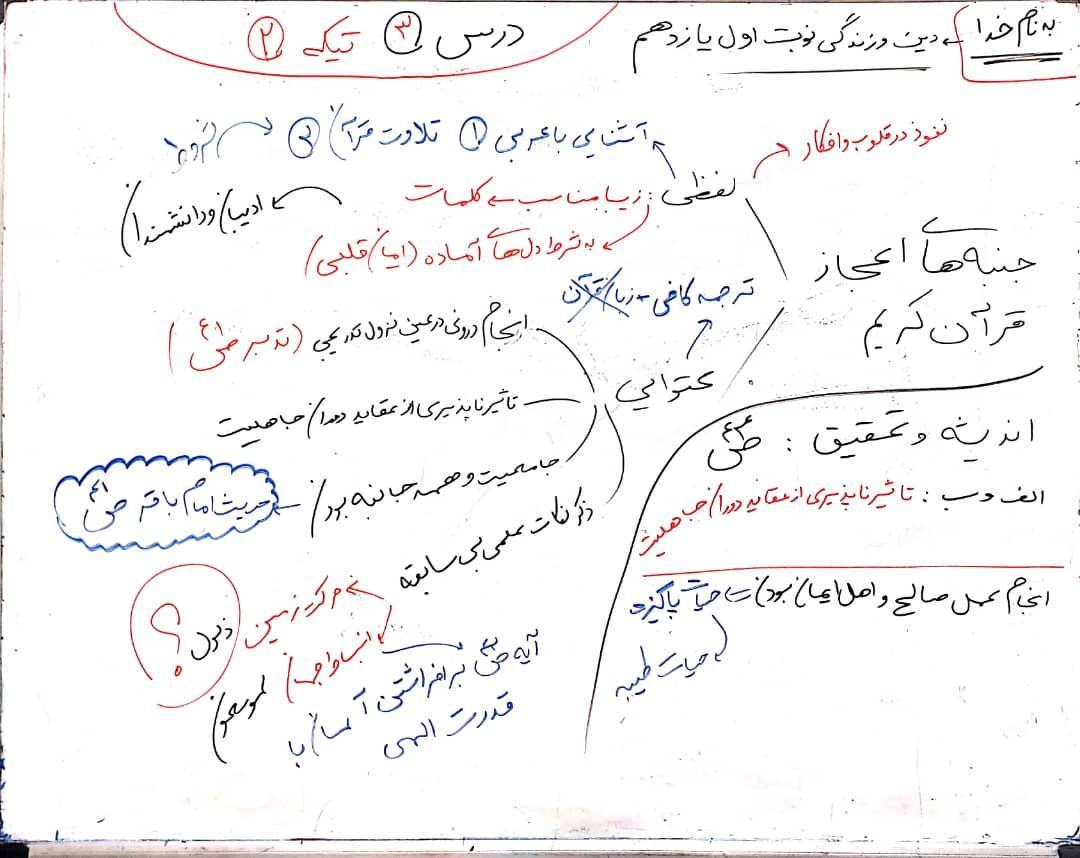 به نام خدا
دین و زندگی نوبت اول یازدهم
درس ③ تیکه ②
جنبه های اعجاز
قرآن کریم
لفظی:
نفوذ در قلوب و افکار
آشنایی با عربی ① تلاوت قرآن ②
شروط
زیبا مناسب کلمات
ادیبان و دانشمندان
به شرط دل‌های آماده (ایمان قلبی)
محتوایی
ترجمه کافی - زبان قرآن
انجام درونی در عین نزول تدریجی (تدبر ص ۴۱)
تاثیر ناپذیری از عقاید دوران جاهلیت
جامعیت و همه جانبه بودن
حدیث امام باقر ص ۴۱
ذکر نکات علمی بی سابقه
حرکت زمین ذلول ؟
انبساط جهان لموسعون
آیه ص برافراشتن آسمان با
قدرت الهی
اندیشه و تحقیق: ص ۴۴
الف و ب: تاثیر ناپذیری از عقاید دوران جاهلیت
انجام عمل صالح و اهل ایمان بودن حیات پاکیزه
حیات طیبه